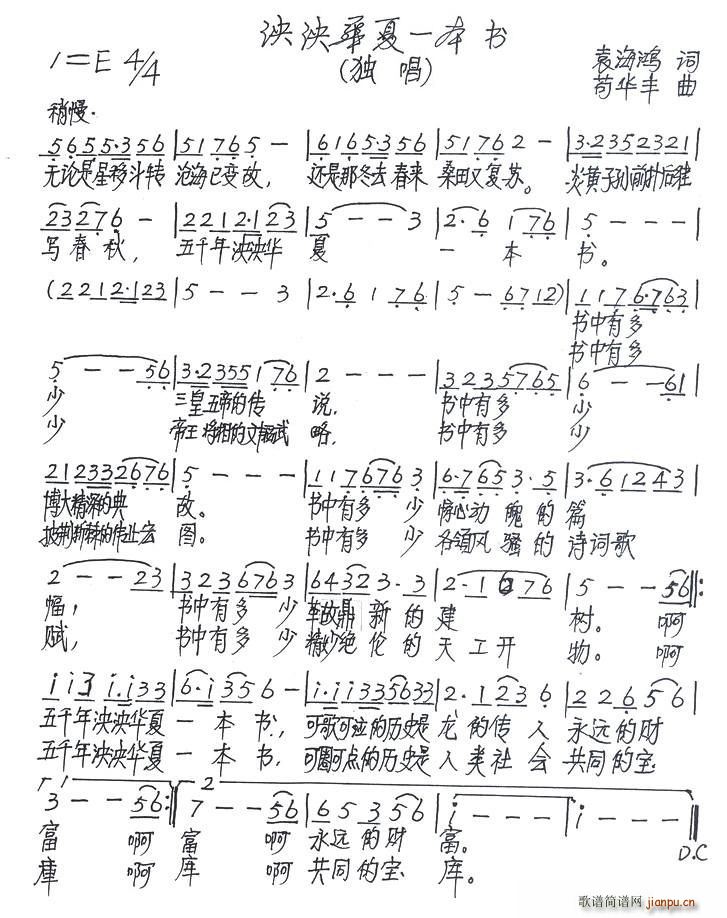 泱泱华夏一本书
(独唱)
1=E 4/4
袁海鸿 词
苟华丰 曲
稍慢.
5655·356 | 51765 - | 6165·356 | 51762 - | 3·2352321 |
无论是星移斗转 沧海已变故, 还是那冬去春来 桑田又复苏。 炎黄子孙前扑后继
23276 - | 2212·123 | 5 - - 3 | 2·6 176 | 5 - - - |
写春秋, 五千年泱泱华 夏 一 本 书。
(2212·123 | 5 - - 3 | 2·6 1 76 | 5 - 6712) | 1176·763 |
书中有多
书中有多
5 - - 56 | 3·2355176 | 2 - - - | 3235765 | 6 - - 61 |
少 三皇五帝的传 说, 书中有多 少
少 帝王将相的文韬武 略, 书中有多 少
212332676 | 5 - - - | 1176763 | 6·7653·5 | 3·61243 |
博大精深的典 故。 书中有多 少 惊心动魄的篇
披荆斩棘的伟业宏 图。 书中有多 少 各领风骚的诗词歌
2 - - 23 | 3236763 | 64323·3 | 2·1676 | 5 - - 56 :|
幅, 书中有多 少 革故鼎新的建 树。 啊
赋, 书中有多 少 精妙绝伦的天工开 物。 啊
113 1·133 | 6·1356 - | 1·11335633 | 2·1236 | 22656 |
五千年泱泱华夏 一本书, 可歌可泣的历史是 龙的传人 永远的财
五千年泱泱华夏 一本书, 可圈可点的历史是 人类社会 共同的宝
1 2
3 - - 56 :| 7 - - 56 | 65356 | 1 - - - | 1 - - - ||
富 啊 富 啊 永远的财 富。
库 啊 库 啊 共同的宝 库。
D.C
歌谱简谱网
jianpu.cn